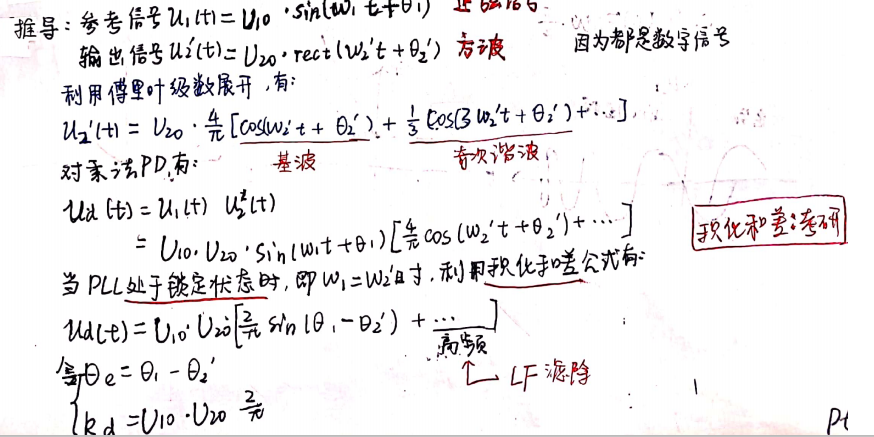 推导：参考信号 U₁(t) = U₁₀ · sin(ω₁t+θ₁) 正弦信号
输出信号 U₂'(t) = U₂₀ · rect(ω₂'t + θ₂') 方波 因为都是数字信号
利用傅里叶级数展开，有：
U₂'(t) = U₂₀ · 4/π [cos(ω₂'t + θ₂') + 1/3 cos(3ω₂'t + θ₂') + …],
基波 奇次谐波
对乘法PD,有：
Ud(t) = U₁(t) U₂'(t)
= U₁₀ · U₂₀ · sin(ω₁t+θ₁) [4/π cos(ω₂'t+θ₂') + …]
积化和差：考研
当PLL处于锁定状态时，即ω₁=ω₂'时，利用积化和差公式有：
Ud(t) = U₁₀ · U₂₀ [2/π sin(θ₁-θ₂') + …]
高频
令θe = θ₁ - θ₂'
LF滤除
kd = U₁₀ · U₂₀ 2/π